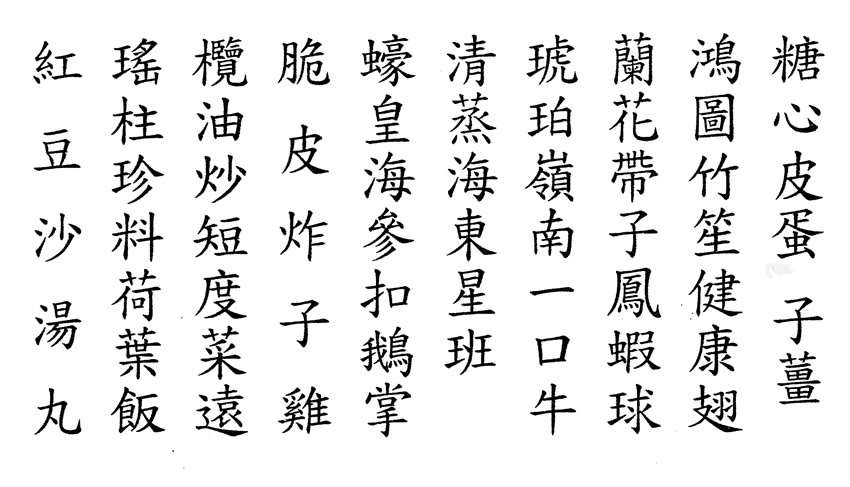 糖心皮蛋子薑
鴻圖竹笙健康翅
蘭花帶子鳳蝦球
琥珀嶺南一口牛
清蒸海東星班
蠔皇海參扣鵝掌
脆皮炸子雞
欖油炒短度菜遠
瑤柱珍料荷葉飯
紅豆沙湯丸